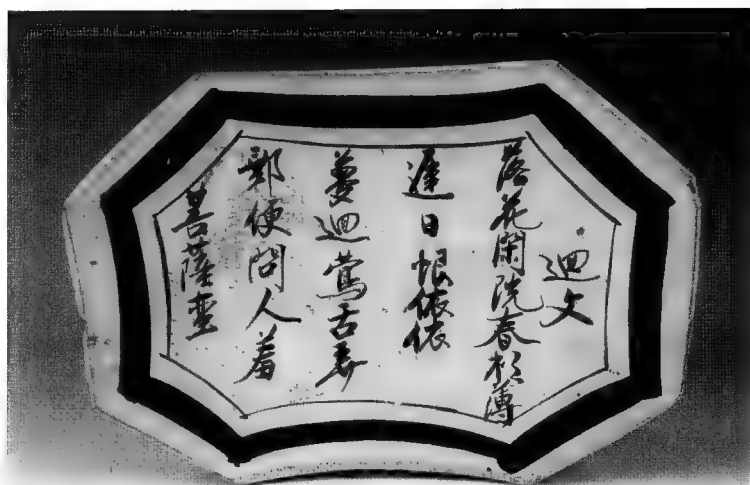 迴文
落花閑院春衫薄
遲日恨依依
夢迴鶯舌弄
郵便問人羞
菩薩蠻